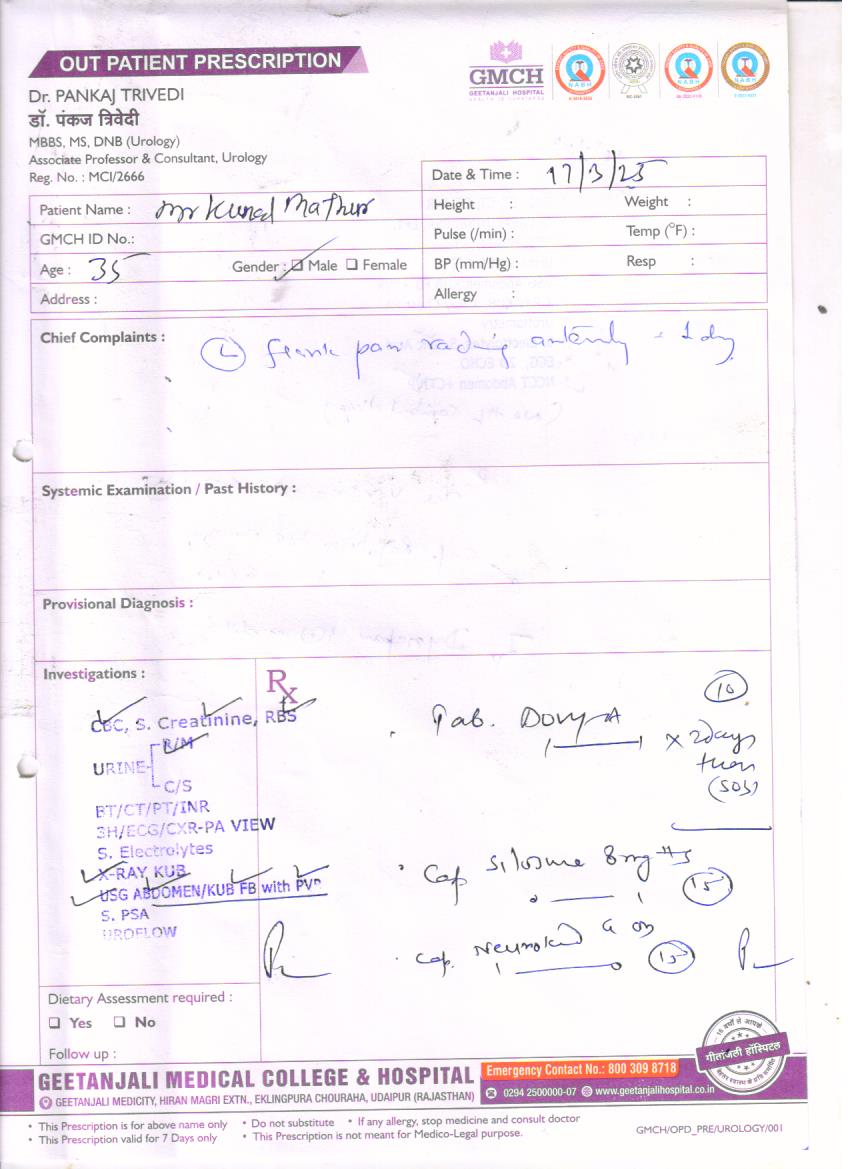 OUT PATIENT PRESCRIPTION
GMCH
GEETANJALI HOSPITAL
Dr. PANKAJ TRIVEDI
डॉ. पंकज त्रिवेदी
MBBS, MS, DNB (Urology)
Associate Professor & Consultant, Urology
Reg. No. : MCI/2666
Date & Time : 17/3/25
Patient Name : Mr Kunal Mathur
Height : Weight :
GMCH ID No.:
Pulse (/min) : Temp (°F) :
Age : 35 Gender : Male Female
BP (mm/Hg) : Resp :
Address :
Allergy :
Chief Complaints :
(L) flank pain anteriorly 1 day
Systemic Examination / Past History :
Provisional Diagnosis :
Investigations :
Rx
CBC, S. Creatinine, RBS
R/M
URINE
C/S
BT/CT/PT/INR
3H/ECG/CXR-PA VIEW
S. Electrolytes
X-RAY KUB
USG ABDOMEN/KUB FB with PVR
S. PSA
UROFLOW
10
Tab.
1 — 1 x 2days
then
(SOS)
Cap 8mg HS
0 — 1 15
Cap. Neurokind G
1 — 0 15
Dietary Assessment required :
Yes No
Follow up :
गीतांजली हॉस्पिटल
GEETANJALI MEDICAL COLLEGE & HOSPITAL
Emergency Contact No.: 800 309 8718
GEETANJALI MEDICITY, HIRAN MAGRI EXTN., EKLINGPURA CHOURAHA, UDAIPUR (RAJASTHAN)
0294 2500000-07 www.geetanjalihospital.co.in
• This Prescription is for above name only • Do not substitute • If any allergy, stop medicine and consult doctor
• This Prescription valid for 7 Days only • This Prescription is not meant for Medico-Legal purpose.
GMCH/OPD_PRE/UROLOGY/001